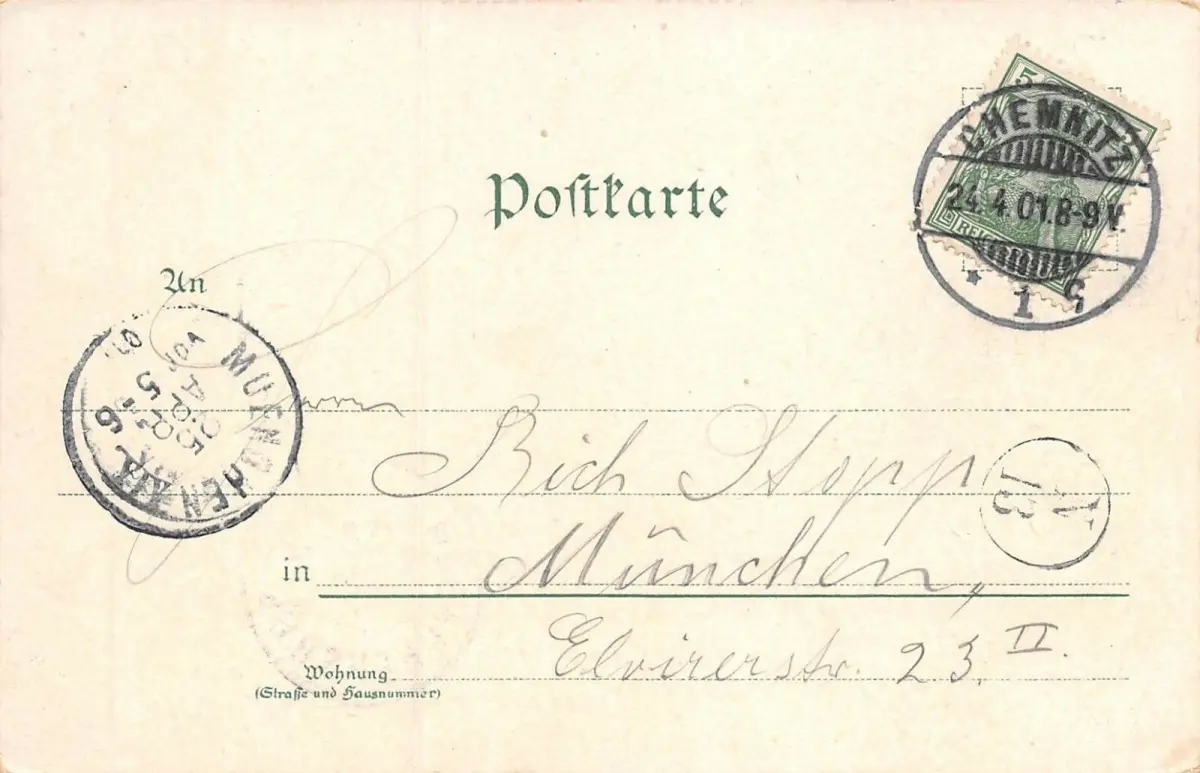 5
CHEMNITZ
24.4.01.8-9V.
* 1 c
REICH
Postkarte
An
MUENCHEN
25
APR
Herrn
Rich Stopp
V
13
in München,
Elvirerstr. 23 II.
Wohnung
(Straße und Hausnummer)